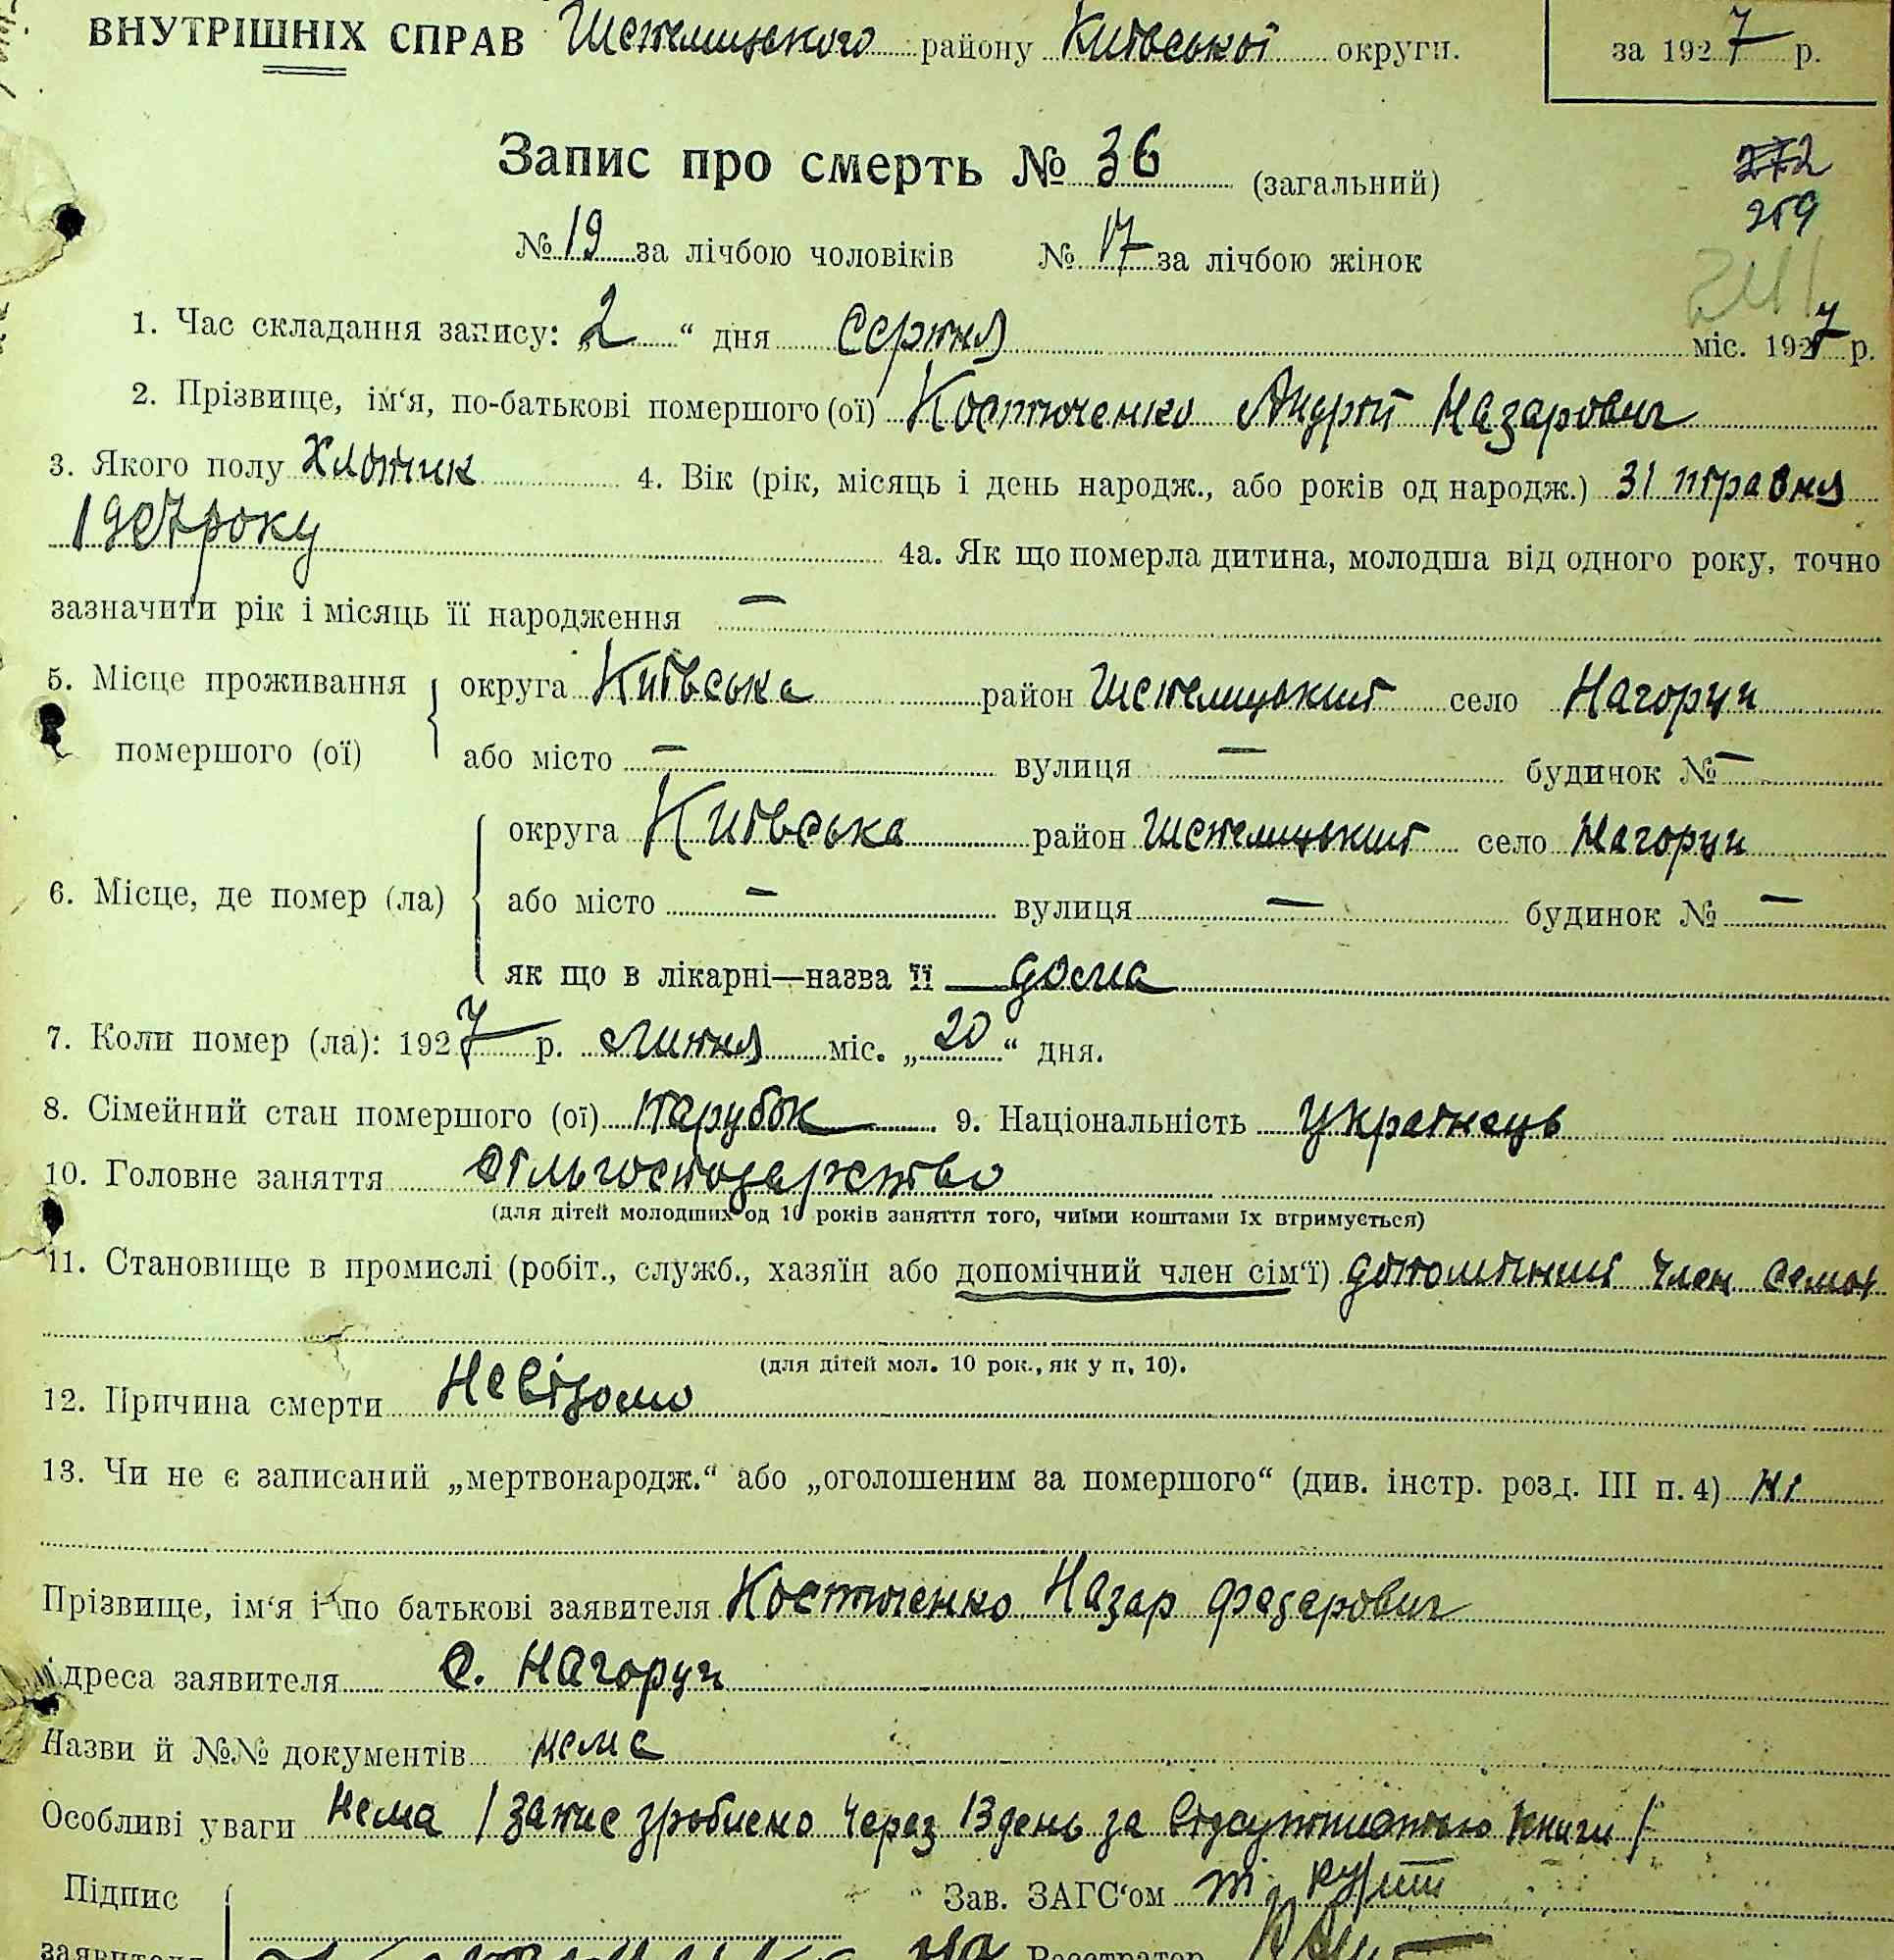 ВНУТРІШНІХ СПРАВ Шепелицького району Київської округи. за 1927 р.
Запис про смерть № 36 (загальний)
272
259
№ 19 за лічбою чоловіків № 17 за лічбою жінок
1. Час складання запису: „2“ дня серпня міс. 1927 р.
2. Прізвище, ім‘я, по-батькові помершого (ої) Костюченко Андрій Назарович
3. Якого полу хлопчик 4. Вік (рік, місяць і день народж., або років од народж.) 31 травня
1907 року 4а. Як що померла дитина, молодша від одного року, точно
зазначити рік і місяць її народження —
5. Місце проживання помершого (ої) округа Київська район Шепелицький село Нагорци
або місто — вулиця — будинок № —
6. Місце, де помер (ла) округа Київська район Шепелицький село Нагорци
або місто — вулиця — будинок № —
як що в лікарні—назва її дома
7. Коли помер (ла): 1927 р. липня міс. „20“ дня.
8. Сімейний стан помершого (ої) парубок 9. Національність Українець
10. Головне заняття сільгосподарство
(для дітей молодших од 10 років заняття того, чиїми коштами їх втримується)
11. Становище в промислі (робіт., служб., хазяїн або допомічний член сім‘ї) допомічний член семьї
(для дітей мол. 10 рок., як у п. 10).
12. Причина смерти Невідомо
13. Чи не є записаний „мертвонародж.“ або „оголошеним за помершого“ (див. інстр. розд. III п. 4) ні
Прізвище, ім‘я і по батькові заявителя Костюченко Назар Федерович
Адреса заявителя с. Нагорци
Назви й №№ документів нема
Особливі уваги нема /запис зроблено через 13 день за відсутністю книги/
Підпис Зав. ЗАГС‘ом
заявителя Реєстратор